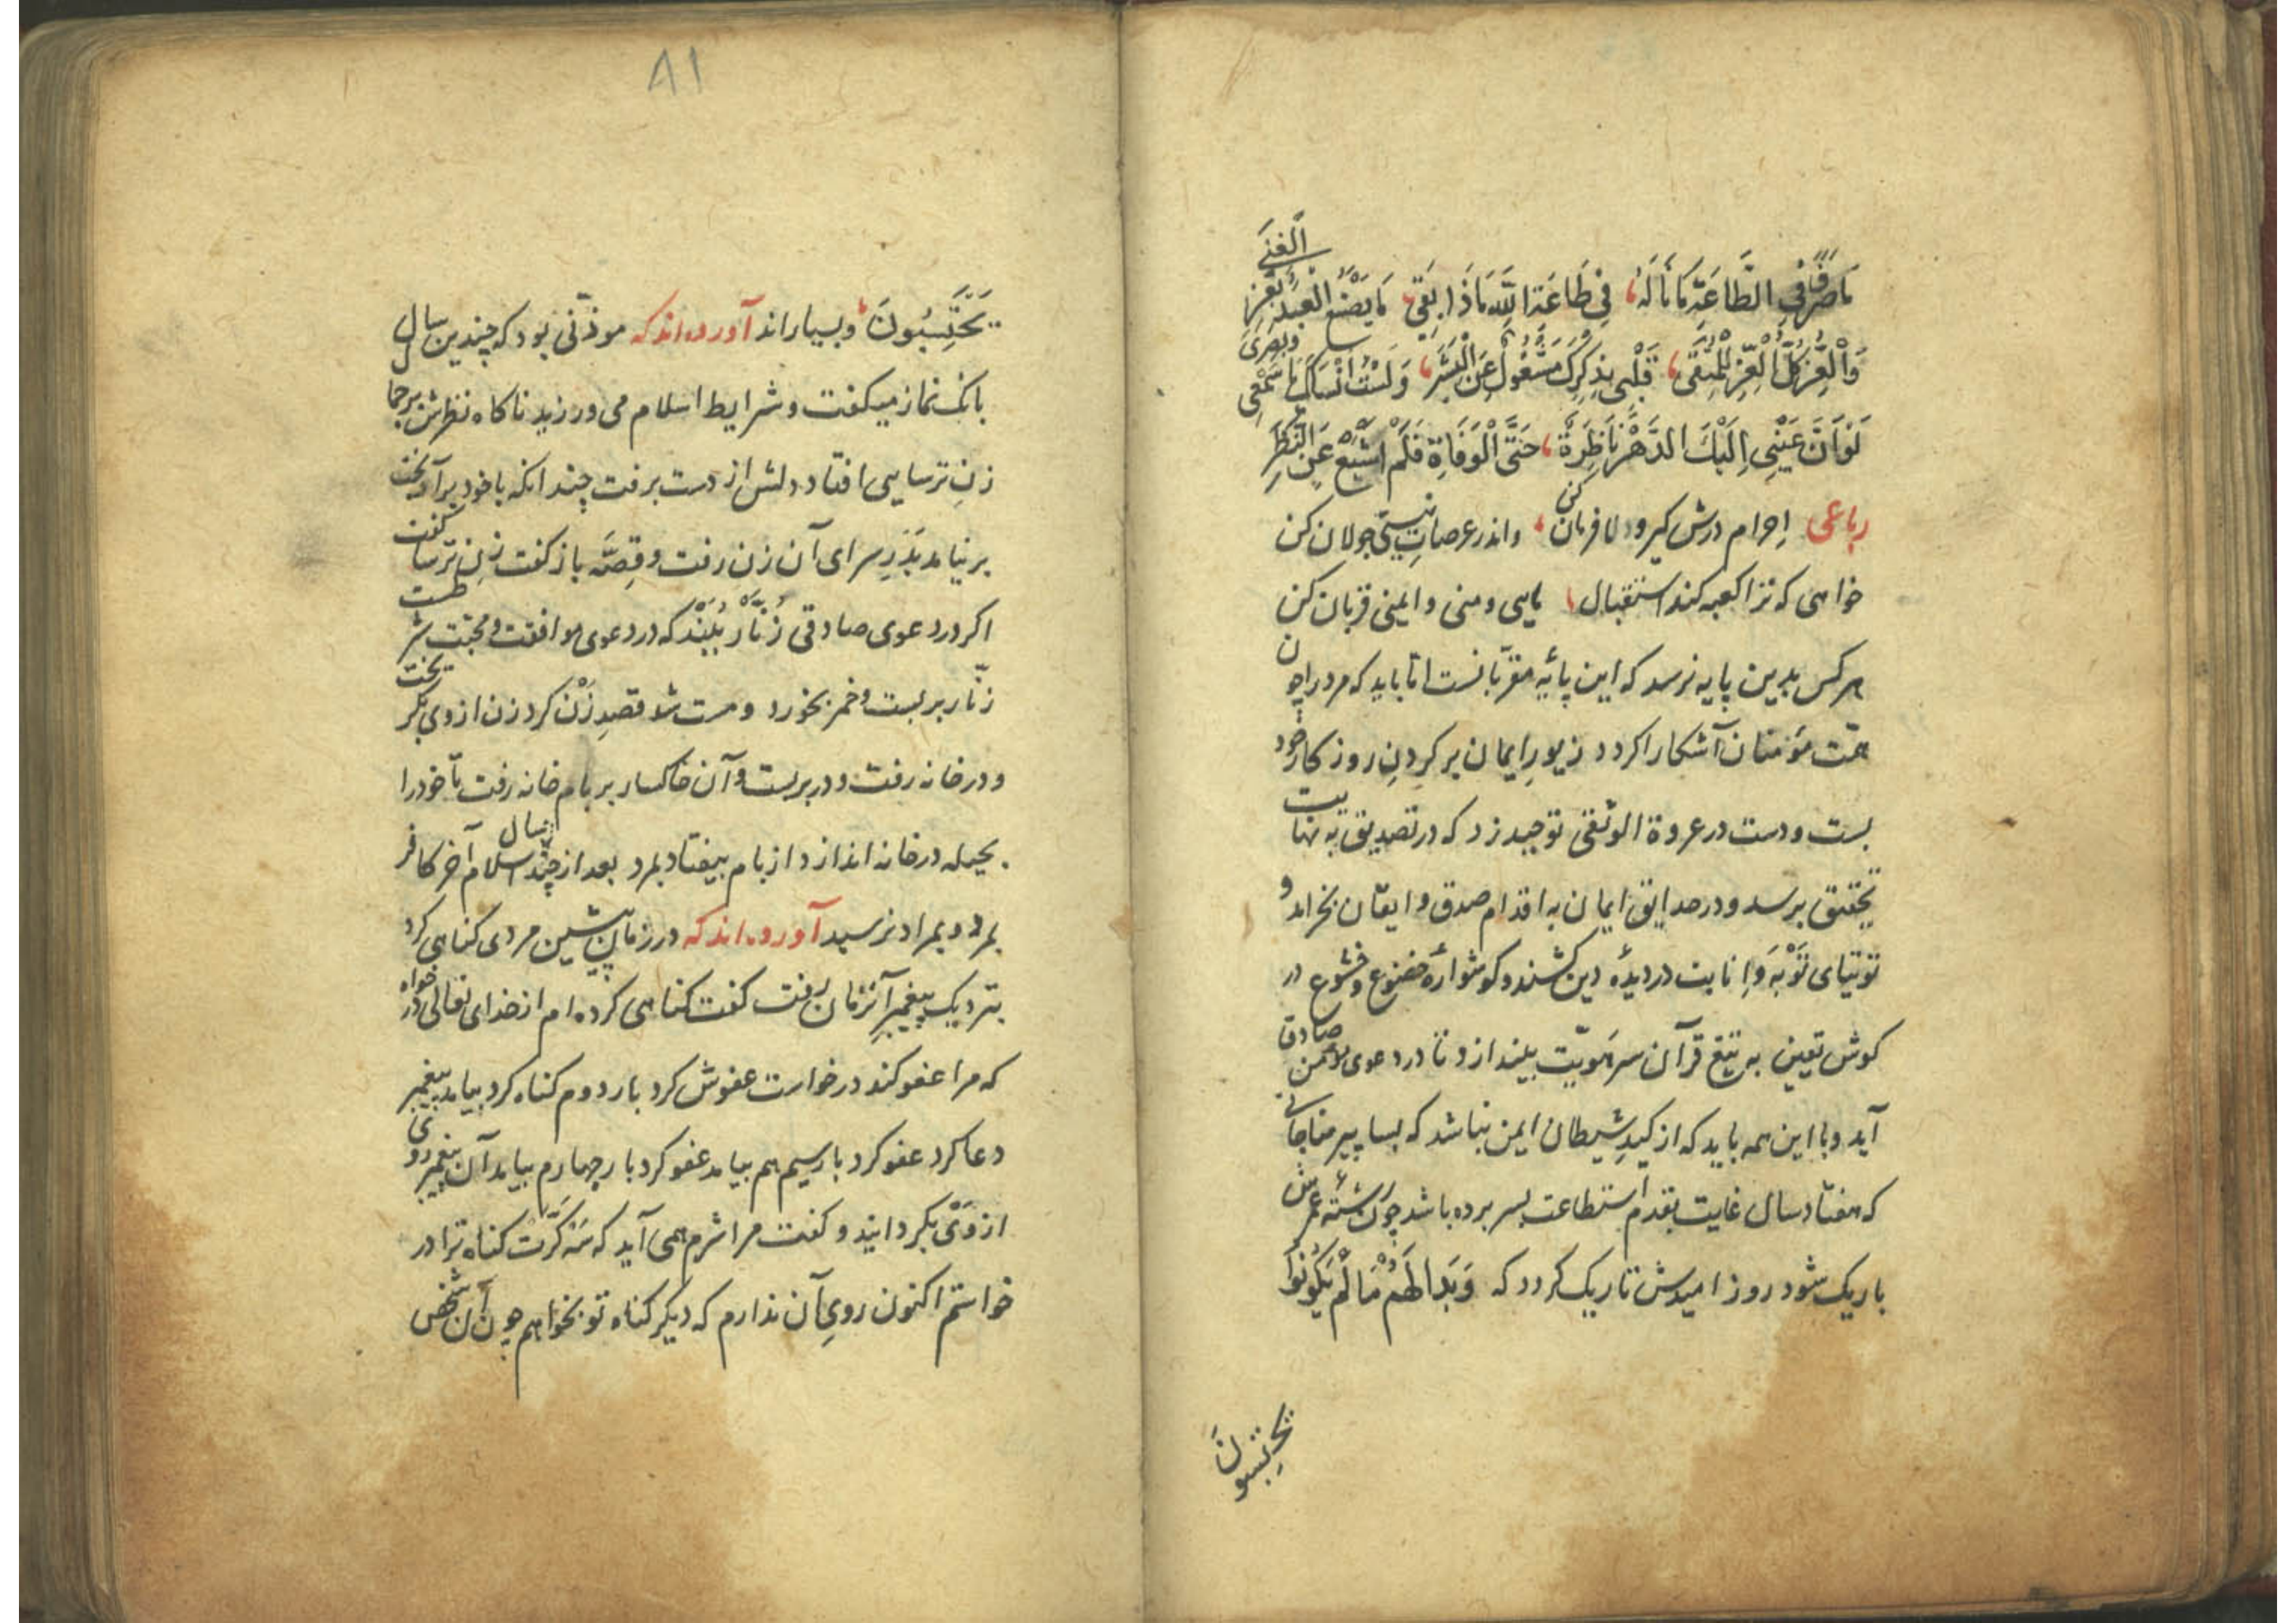 ما ضرّ فی الطَّاعَةِ مَا نَالَهُ فِی طَاعَةِ اللّٰهِ مَاذَا بَقِیَ مَا یَصْنَعُ الْعَبْدُ بِعِزِّ الْغِنَی
وَالْعِزُّ کُلُّ الْعِزِّ لِلْمُتَّقِی قَلْبِی بِذِکْرِکَ مَشْغُولٌ عَنِ الْبَشَرِ وَلَسْتُ انْسَاکَ یا سَمْعِی وبَصَرِی
لَوْ اَنَّ عَیْنِی اِلَیْکَ الدَّهْرَ نَاظِرَةٌ حَتَّی الْوَفَاةِ فَلَمْ اَشْبَعْ عَنِ النَّظَرِ
رباعی اِحرام درش کیر ودلا فرمان کن واندر عرصاتِ نیستی جولان کن
خواهی که ترا کعبه کند استقبال مایی ومنی وایمنی قربان کن
هرکس بدین پایه نرسد که این پایهٔ مقرّبانست امّا باید که مرد را چون
همّت مؤمنان آشکارا کردد زیورِ ایمان بر کردنِ روزکار خود
بست ودست در عروة الوثقی توحید زد که در تصدیق به نهایت
تحقیق برسد ودر حدایق ایمان به اقدام صدق وایقان بخرامد و
توتیای تَوْبَه وَاِنابت در دیدهٔ دین کشند وکوشوارهٔ خضوع وخشوع در
کوش تعین به تیغ قرآن سر هَوِیّت بیندازد تا در دعوی لامحن صادق
آید وبا این همه باید که از کیدِ شیطان ایمن نباشد که بسا پیر مناجاتی
که هفتاد سال غایت بقدم استطاعت بسر برده باشد چون رشتهٔ عمرش
باریک شود روز امیدش تاریک کردد که وَبَدا لَهُمْ مَا لَمْ یَکُونُوا
یحتسبون
٨١
یَحْتَسِبُونَ وبسیاراند آورده‌اند که موذّنی بود که چندین سال
بانک نماز میکفت وشرایط اسلام می ورزید ناکاه نظرش بر جمال
زنِ ترسایی افتاد دلش از دست برفت چندانکه با خود برآویخت
برنیامد بَدَرِ سرای آن زن رفت وقِصَّه باز کفت زن ترسا کفت
اکر در دعوی صادقی زُنّار بْبَنْد که در دعوی موافقت ومحبّت شرطست
زنّار بر بست وخمر بخورد ومست شد قصدِ زَنْ کرد زن از وی بکریخت
ودر خانه رفت ودر بربست وآن خاکسار بر بام خانه رفت تا خود را
بحیله در خانه اندازد از بام بیفتاد بمرد بعد از چند سال اسلام آخر کافر
بمرد وبمراد نرسید آورده‌اند که در زمانِ پیشین مردی کناهی کرد
بنزدیک پیغمبرِ آنزمان رفت کفت کناهی کرده ام از خدای تعالی در خواه
که مرا عفو کند درخواست عفوش کرد بار دوم کناه کرد بیامد پیغمبر
دعا کرد عفو کرد بار سیم هم بیامد عفو کرد بار چهارم بیامد آن پیغمبر روی
از وَیْ بکردانید وکفت مرا شرم همی آید که سَه کَرَّتْ کناه ترا در
خواستم اکنون رویِ آن ندارم که دیکر کناه تو بخواهم چون آن شخص